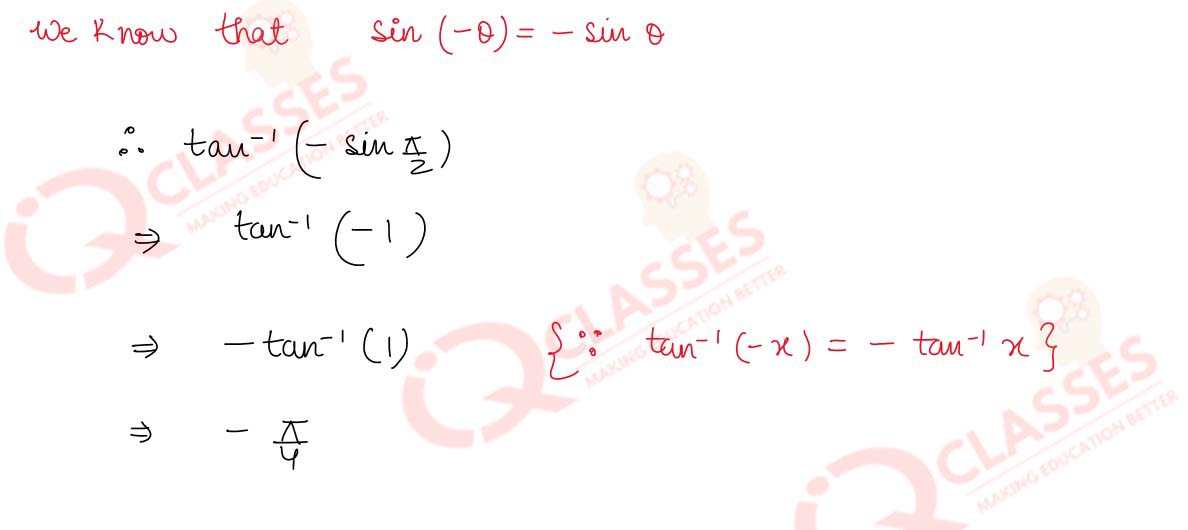 We know that sin (-θ) = - sin θ
∴ tan⁻¹ (- sin π/2)
⇒ tan⁻¹ (-1)
⇒ - tan⁻¹ (1) {∵ tan⁻¹ (-x) = - tan⁻¹ x}
⇒ - π/4
iQ CLASSES
MAKING EDUCATION BETTER
iQ CLASSES
MAKING EDUCATION BETTER
iQ CLASSES
MAKING EDUCATION BETTER